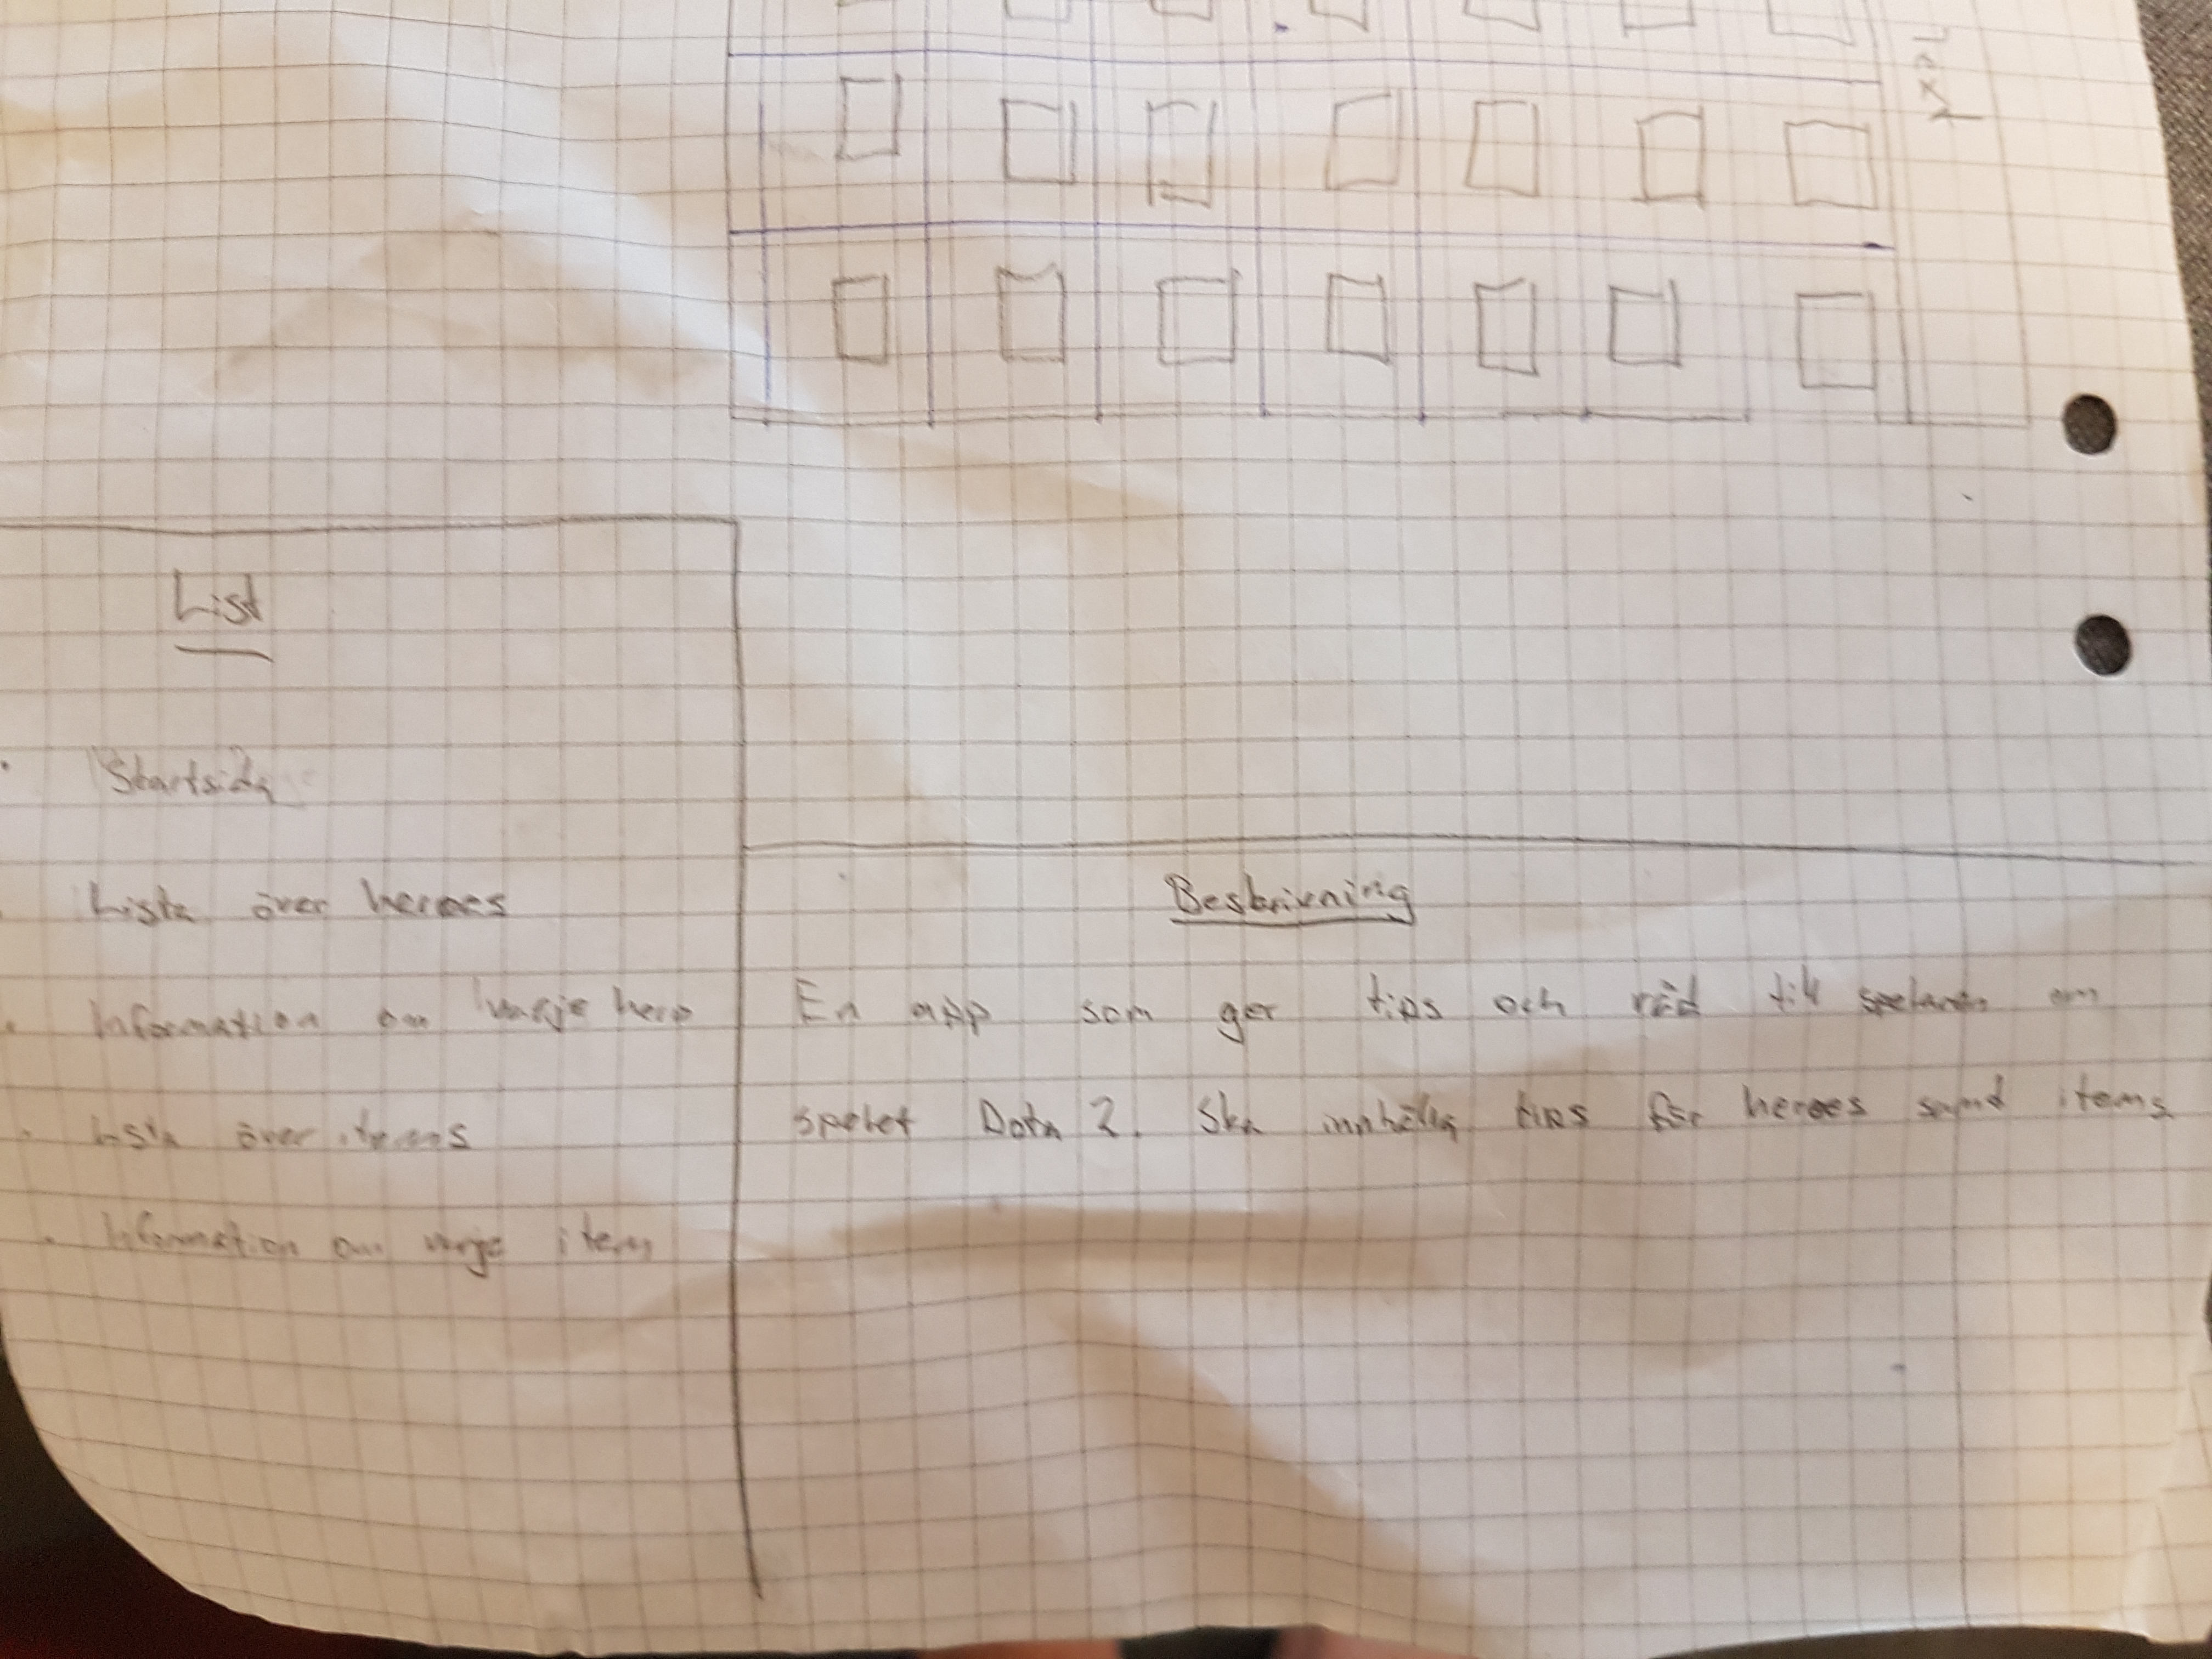 List
Startsida
Lista över heroes
Information om varje hero
Lista över items
Information om varje item
Beskrivning
En app som ger tips och råd till spelaren om
spelet Dota 2. Ska innhålla tips för heroes samt items